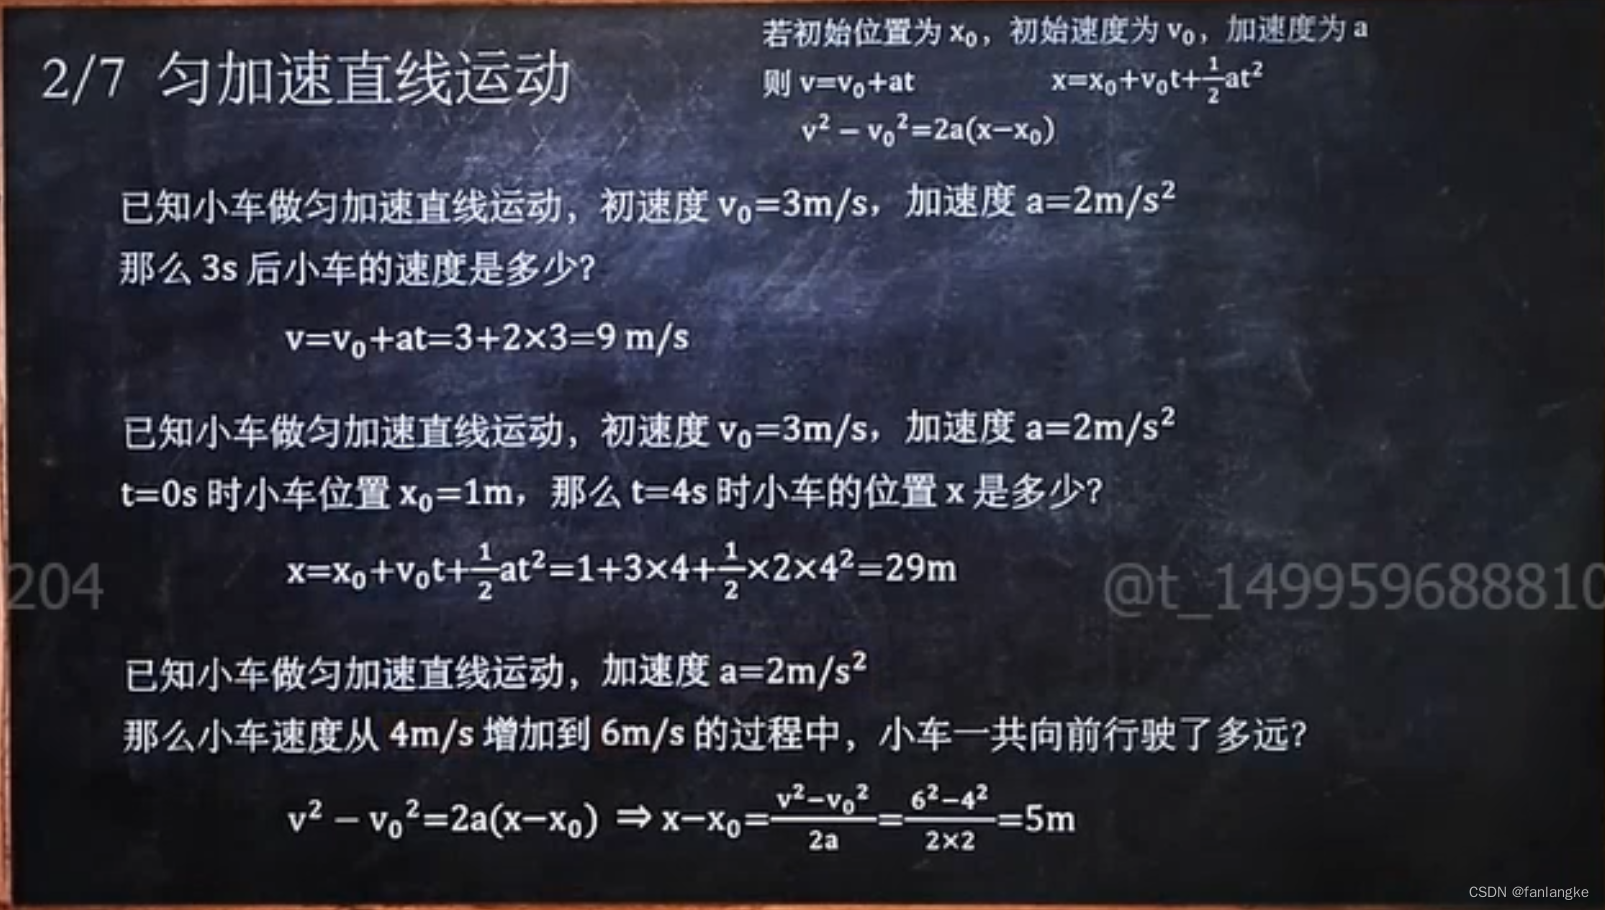 2/7 匀加速直线运动
若初始位置为 x₀，初始速度为 v₀，加速度为 a
则 v=v₀+at x=x₀+v₀t+½at²
v² − v₀²=2a(x−x₀)
已知小车做匀加速直线运动，初速度 v₀=3m/s，加速度 a=2m/s²
那么 3s 后小车的速度是多少？
v=v₀+at=3+2×3=9 m/s
已知小车做匀加速直线运动，初速度 v₀=3m/s，加速度 a=2m/s²
t=0s 时小车位置 x₀=1m，那么 t=4s 时小车的位置 x 是多少？
x=x₀+v₀t+½at²=1+3×4+½×2×4²=29m
204
@t_149959688810
已知小车做匀加速直线运动，加速度 a=2m/s²
那么小车速度从 4m/s 增加到 6m/s 的过程中，小车一共向前行驶了多远？
v² − v₀²=2a(x−x₀) ⇒ x−x₀=(v²−v₀²)/(2a)=(6²−4²)/(2×2)=5m
CSDN @fanlangke